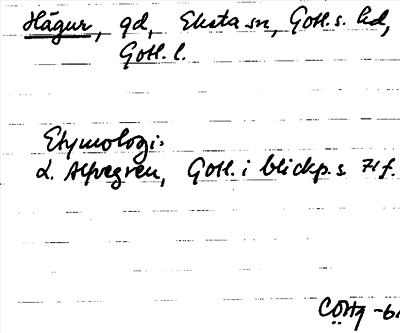 Hägur, gd, Eksta sn, Gotl. s. hd,
Gotl. l.
Etymologi:
L. Alvegren, Gotl. i blickp. s. 71 f.